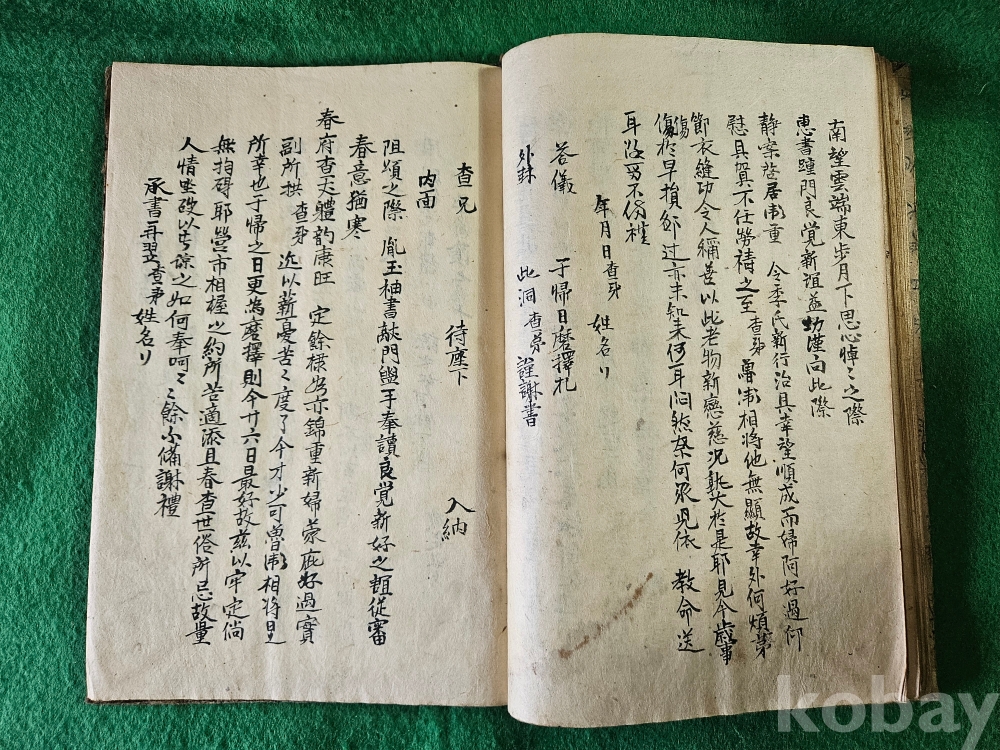 南望雲端東步月下思心悼〻之際
惠書踵門良覺新誼益切謹向此際
靜案啓居衛重 令季氏新行治具幸望順成而婦阿好過仰
慰具賀不任勞禱之至 查弟 衛相將他無顯故幸外何煩第
節衣縫功令人稱善以此老物新戀慈况孰大於是耶見今歲事
傷於早損 過亦未知末何耳 然奈何 兒依 教命送
耳 不份禮
年月日查弟 姓名 
答儀 于歸日磨擇札
外封 此洞查弟 謹謝書
查兄 待座下 入納
內面
阻頌之際 胤玉袖書敲門盥手奉讀良覺新好之 從審
春意猶寒
春府查丈體韵康旺 定餘候 亦錦重新婦蒙庇好過實
副所拱 查弟 近以薪憂苦〻度了今才少可 衛相將是
所幸也于歸之日更爲磨擇則今廿六日最好故玆以牢定倘
無拘碍耶營市相握之約所苦適添且春查世俗所忌故量
人情 改以 諒之如何奉呵〻〻餘不備謝禮
承書再翌查弟姓名 
kobay